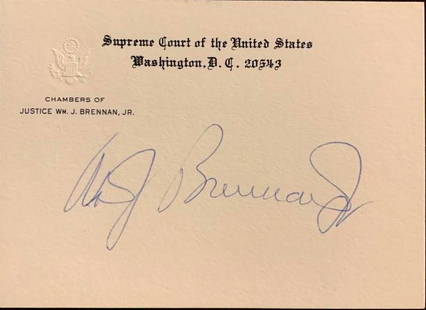 Supreme Court of the United States
Washington, D. C. 20543
CHAMBERS OF
JUSTICE WM. J. BRENNAN, JR.
Wm J Brennan Jr